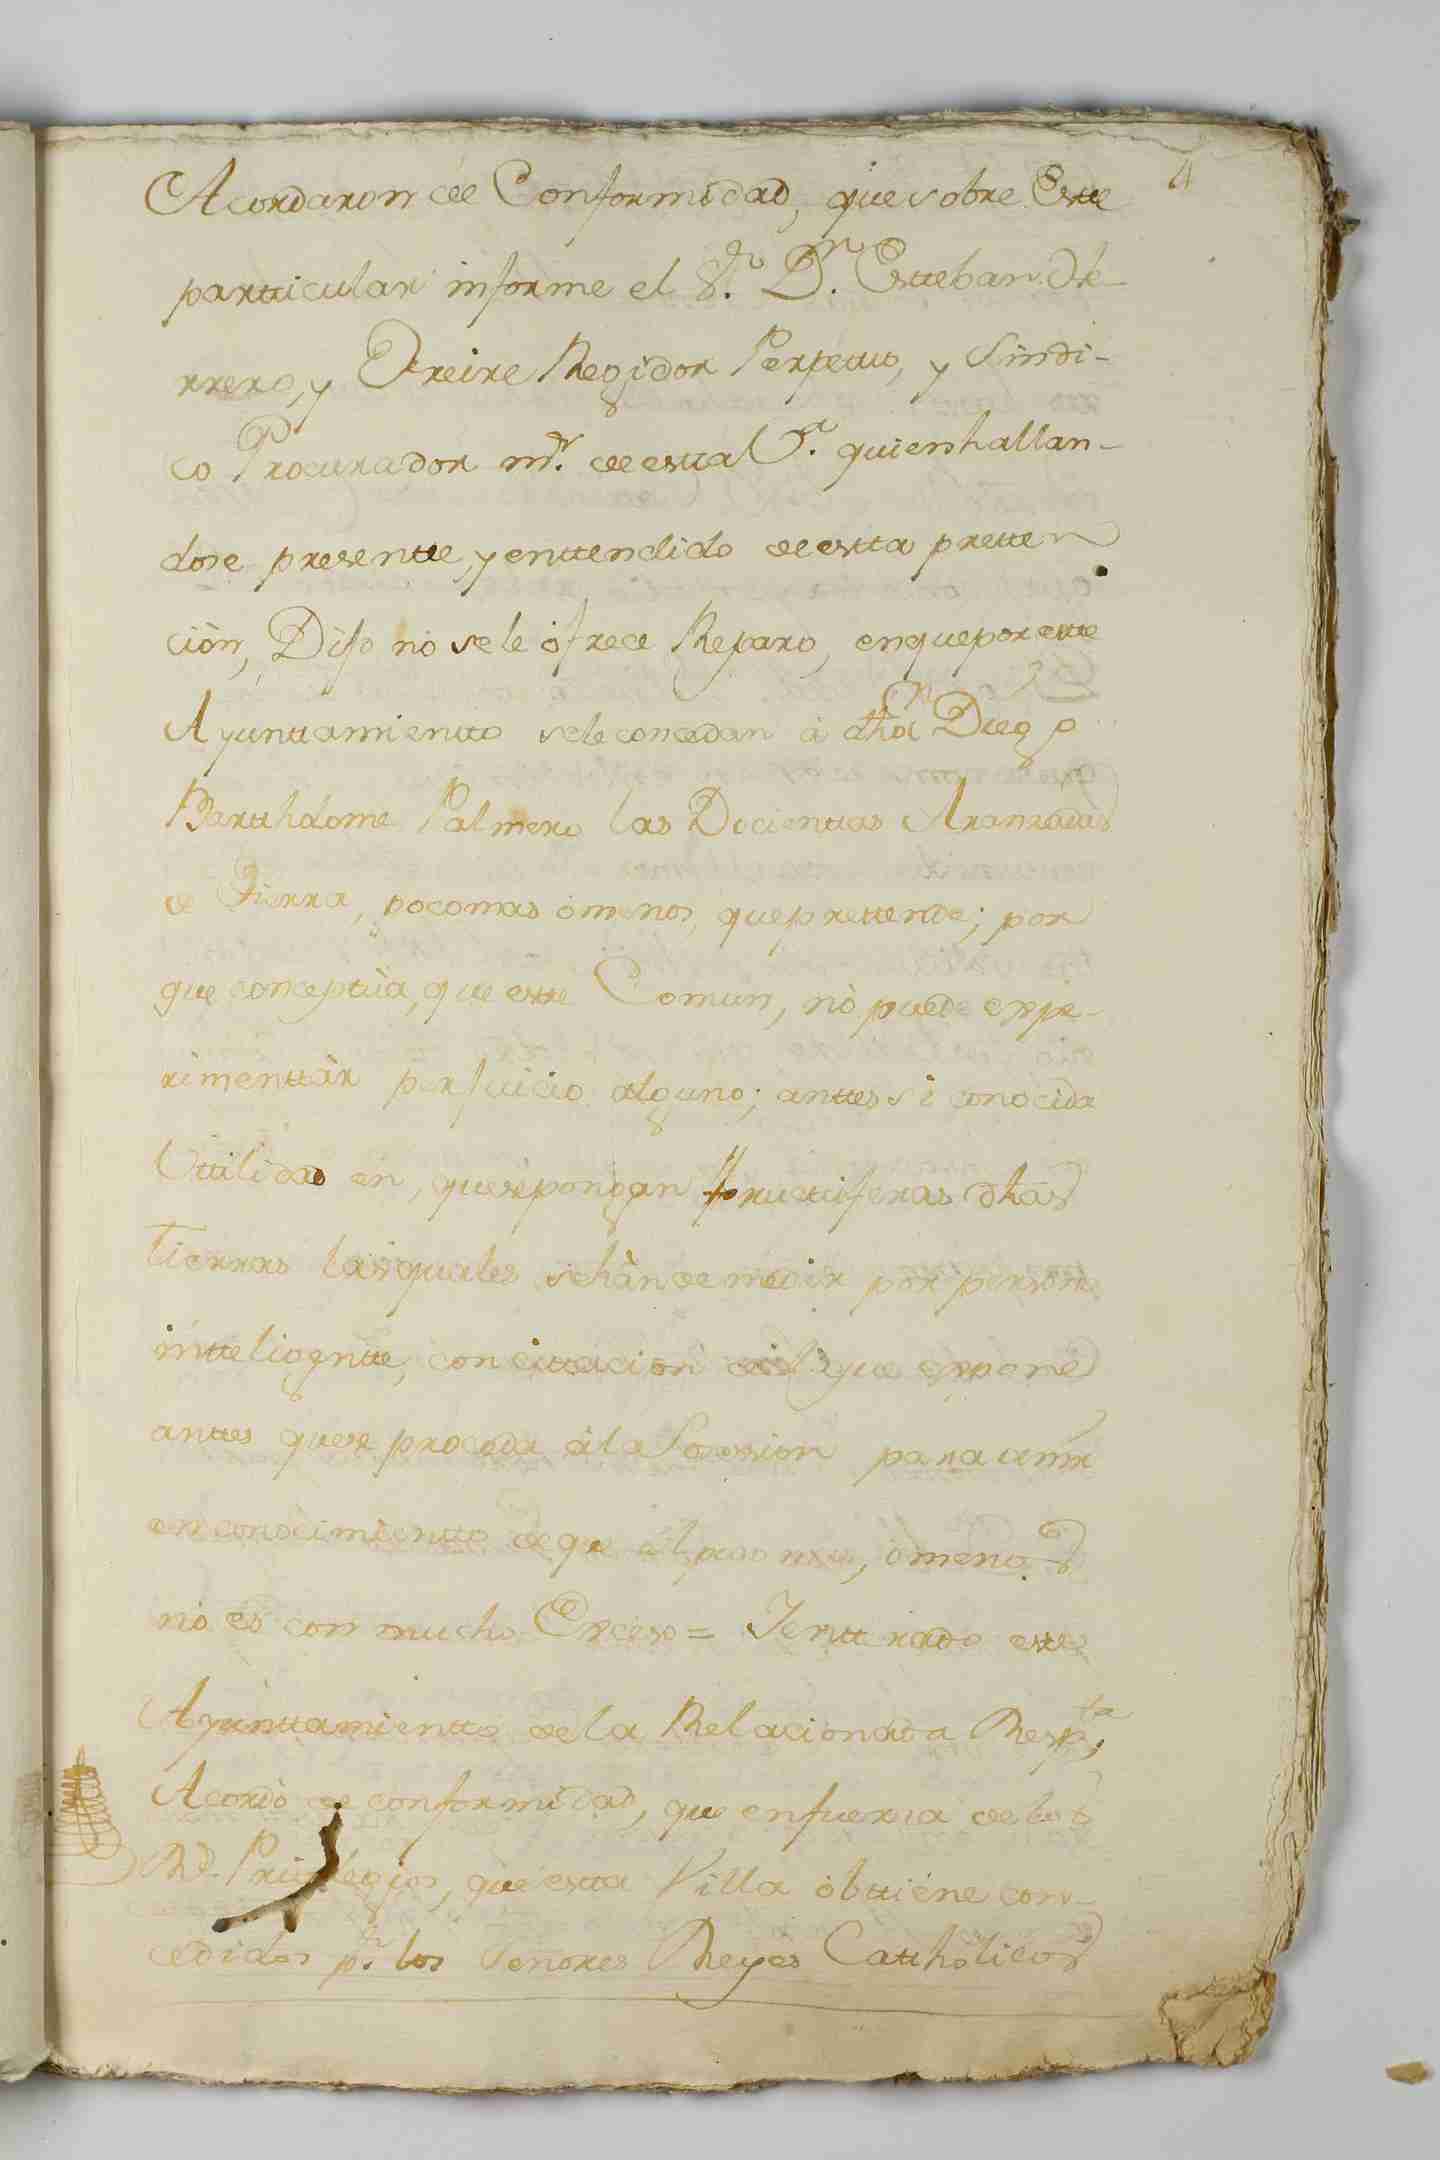 4
Acordaron de Conformidad, que sobre Este
particular informe el S.or D.n Esteban de
rrero, y Freire Regidor Perpetuo, y Sindi-
co Procurador m.r de esta V.a quien hallan-
dose presentte, y enttendido de estta pretten
ción, Dijo no se le ófrece Reparo, en que por este
Ayunttamientto se le concedan á dho Dn Diego
Barthólome Palmero las Docienttas Aranzadas
de Tierra, poco mas ó menos, que prettende; por
que conceptúa, que este Comun, nó puede expe-
rimenttár perjuicio alguno; anttes si conocida
Uttilidad en, que se pongan fructtiferas dhas
Tierras las quales se hán de medir por persona
intteligentte, con cittacion del que expone
anttes que se proceda á la Posession para venir
en conocimientto de que el poco mas, ó menos
nó es con mucho Exceso = Yentterado este
Ayunttamientto de la Relacionada Resp.ta;
Acordó de conformidad, que en fuerza de los
R.s Privilegios, que estta Villa óbttiene con-
cedidos p.r los Señores Reyes Catthólicos